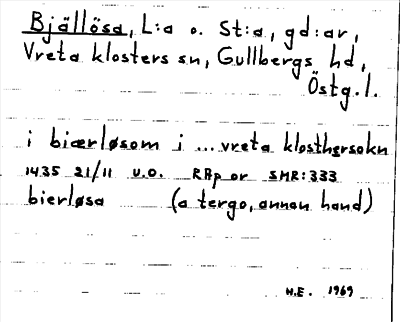 Bjällösa, L:a o. St:a, gd:ar,
Vreta klosters sn, Gullbergs hd,
Östg.l.
i biærløsom i ... vreta klosthersokn
1435 21/11 u.o. RAp or SMR:333
bierløsa (a tergo, annan hand)
H.E. 1969